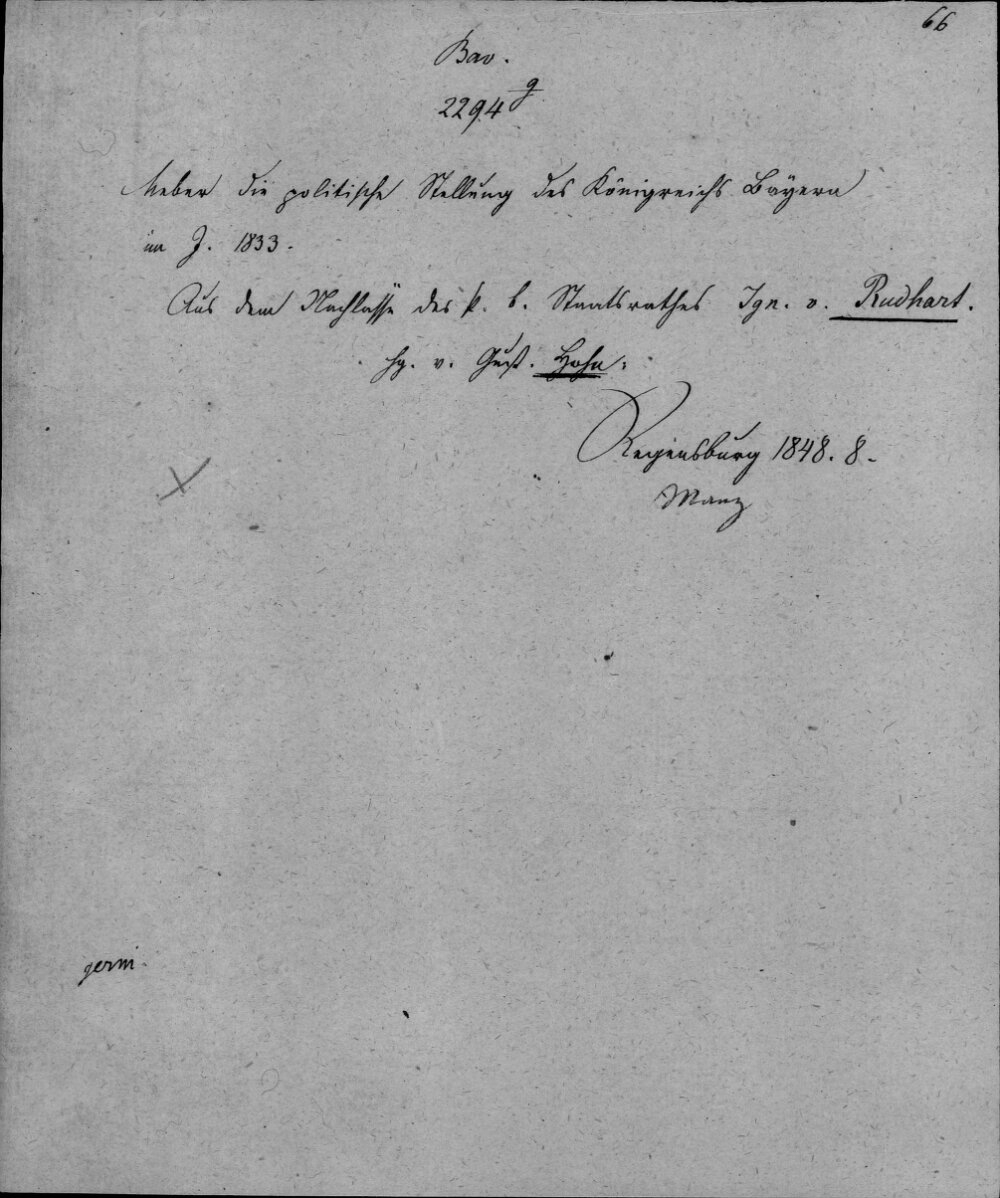 66
Bav.
2294 g
Ueber die politische Stellung des Königreichs Bayern
im J. 1833.
Aus dem Nachlasse des k. b. Staatsrathes Ign. v. Rudhart.
hg. v. Gust. Hohn.
Regensburg 1848. 8.
Manz
germ.